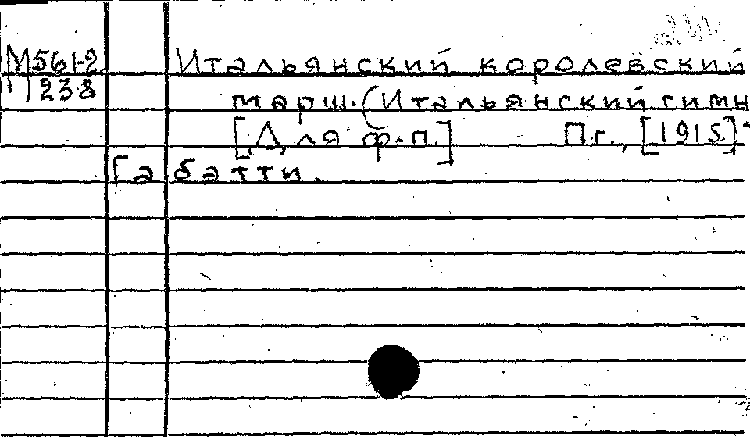 М561-2 Итальянский королевский
П238 марш. (Итальянский гимн
[Для ф.-п.] Пг., [1915].
Габатти.